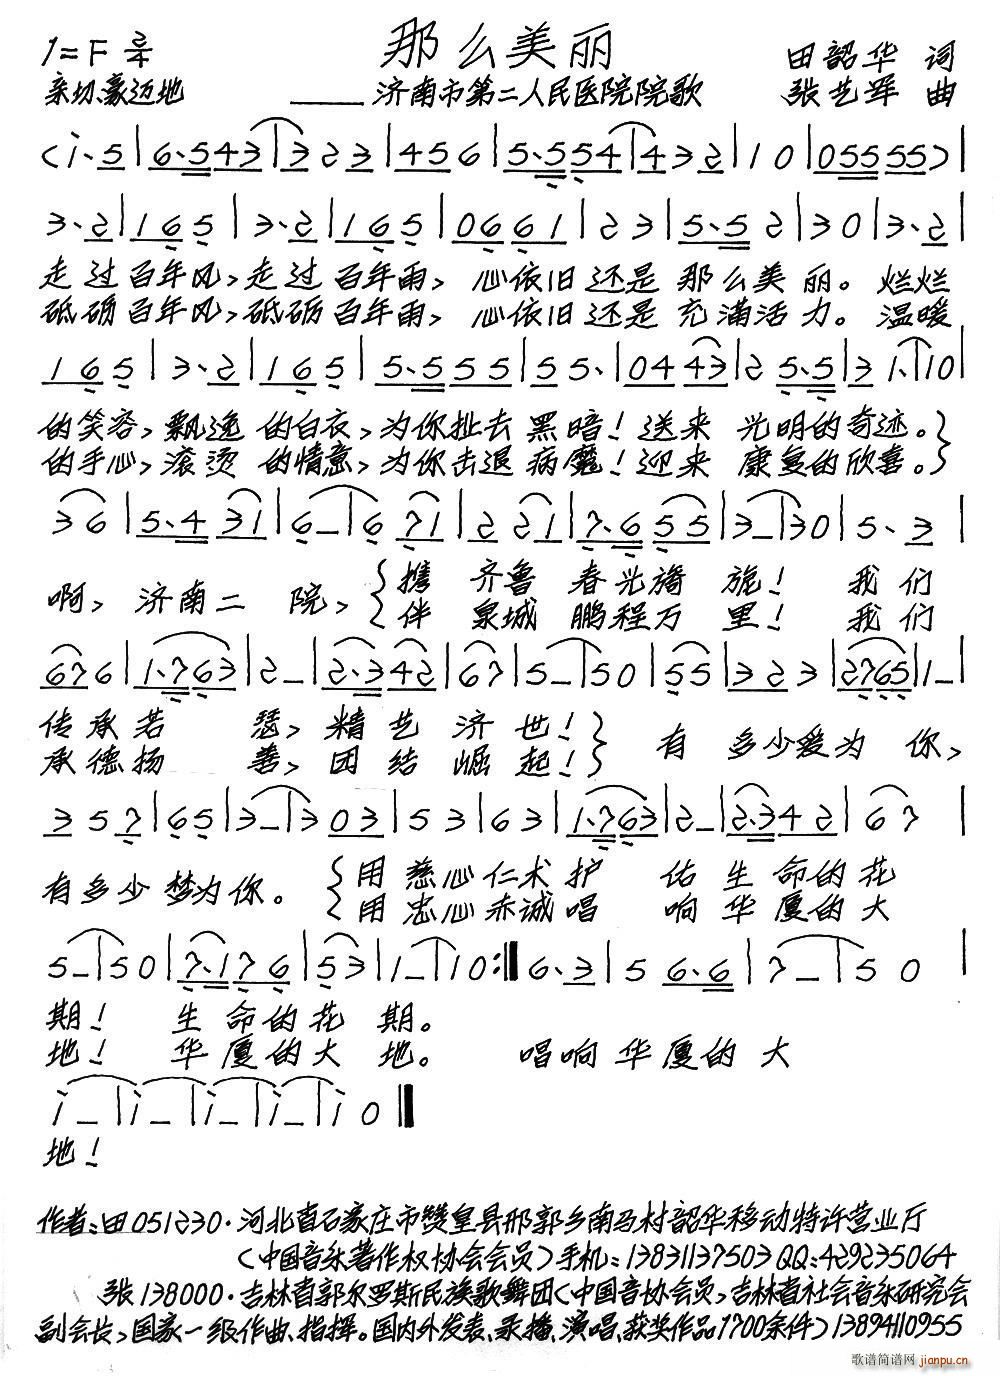 1=F 2/4 那么美丽 田韶华 词
亲切、豪迈地 ——济南市第二人民医院院歌 张艺军 曲
(i·5|6·543|323|456|5·554|432|10|05555)|
3·2|165|3·2|165|0661|23|5·52|30|3·2|
走过百年风,走过百年雨,心依旧还是那么美丽。烂烂
砥砺百年风,砥砺百年雨,心依旧还是充满活力。温暖
165|3·2|165|5·555|55·|0443|25·5|31·|10|
的笑容,飘逸的白衣,为你扯去黑暗!送来光明的奇迹。}
的手心,滚烫的情意,为你击退病魔!迎来康复的欣喜。}
36|5·431|6–|671|221|7·655|3–|30|5·3|
啊,济南二院,{携齐鲁春光旖旎!我们
伴泉城鹏程万里!我们
676|1·763|2–|2·342|67|5–|50|55|323|2765|1–|
传承若瑟,精艺济世!}有多少爱为你,
承德扬善,团结崛起!}
357|65|3–|303|53|63|1·763|2–|2·342|67|
有多少梦为你。{用慈心仁术护佑生命的花
用忠心赤诚唱响华厦的大
5–|50|7·176|53|1–|10:‖6·3|56·6|7–|50|
期!生命的花期。
地!华厦的大地。唱响华厦的大
i–|i–|i–|i–|i0‖
地!
作者:田051230·河北省石家庄市赞皇县邢郭乡南马村韶华移动特许营业厅
(中国音乐著作权协会会员)手机:13831137503 QQ:429235064
张138000·吉林省郭尔罗斯民族歌舞团(中国音协会员,吉林省社会音乐研究会
副会长,国家一级作曲、指挥。国内外发表、录播、演唱、获奖作品1700余件)13894110955
歌谱简谱网 jianpu.cn